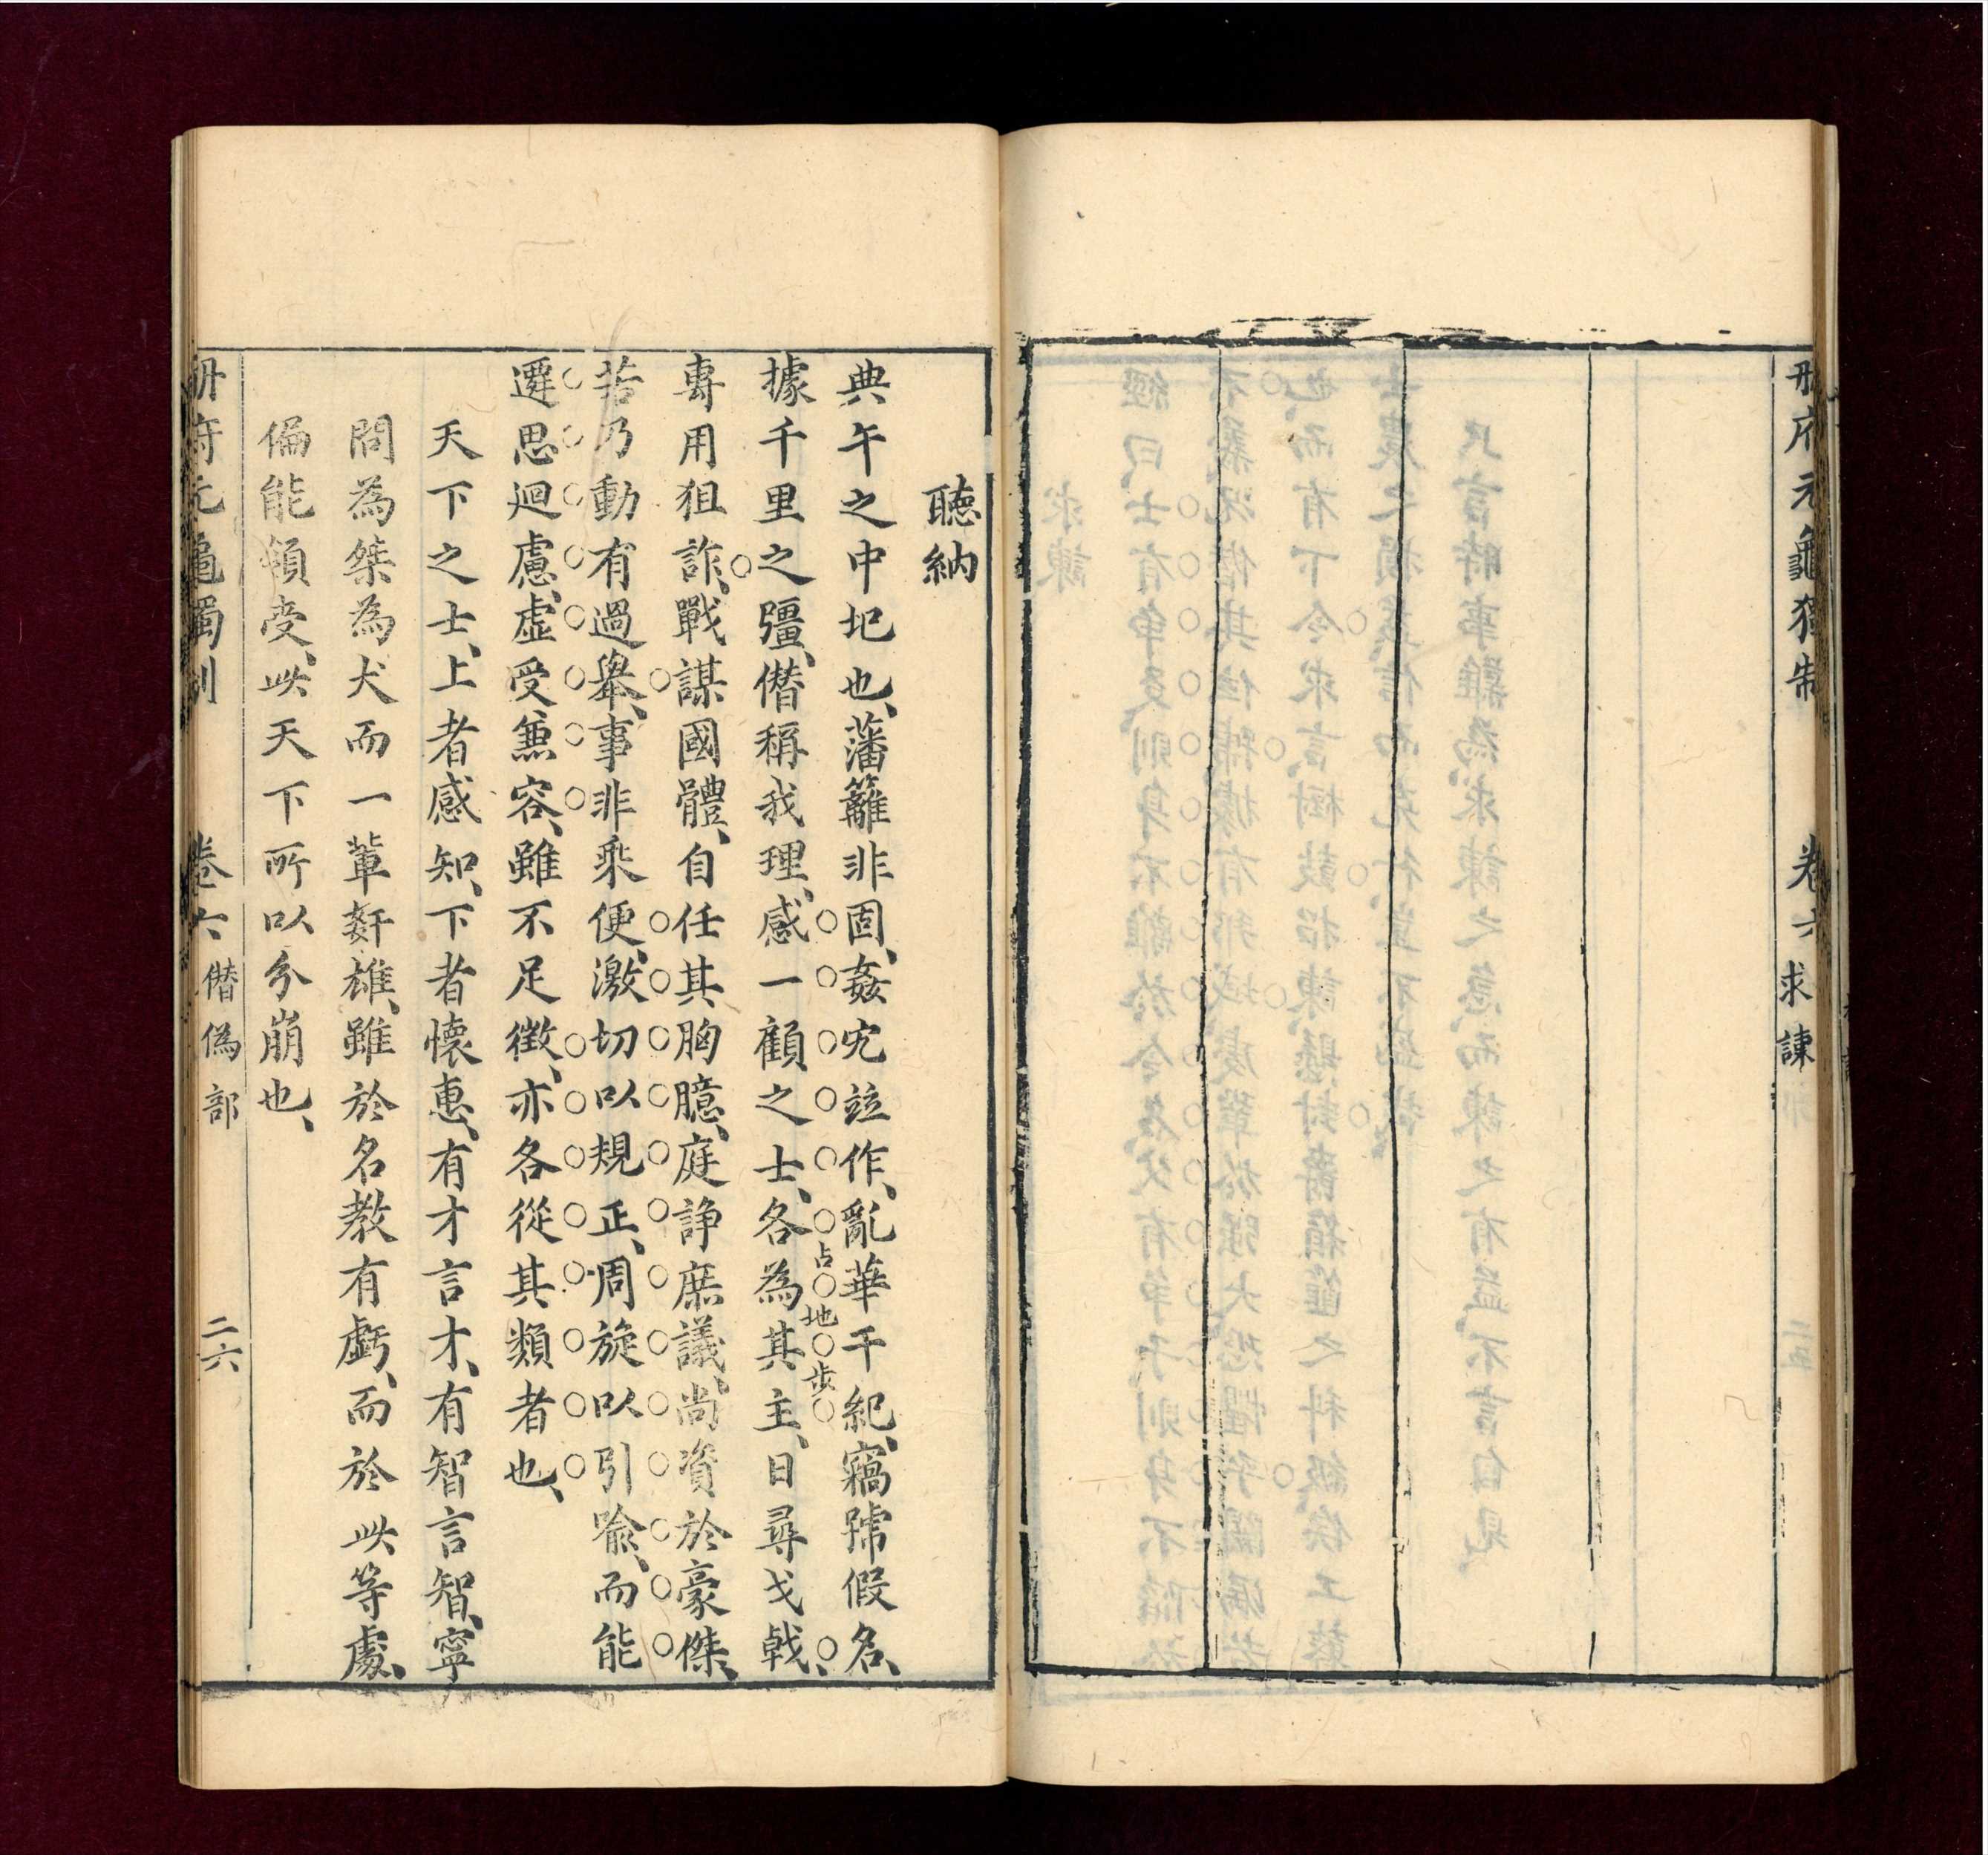 冊府元龜獨制 卷六 求諫
聽納
典午之中圯也、藩籬非固、姦宄竝作、亂華干紀、竊號假名、
據千里之彊、僣稱我理、感一顧之士、各為其主、日尋戈戟、
專用狙詐、戰謀國體、自任其胸臆、庭諍庶議、尚資於豪傑、
若乃動有過舉、事非乘便、激切以規正、周旋以引喻、而能
遷思迴慮、虛受兼容、雖不足徵、亦各從其類者也、
天下之士、上者感知、下者懷惠、有才言才、有智言智、寧
問為桀為犬而一輩姧雄、雖於名教有虧、而於此等處、
偏能領受、此天下所以分崩也、
占地步
冊府元龜獨制 卷六 僣偽部 二六